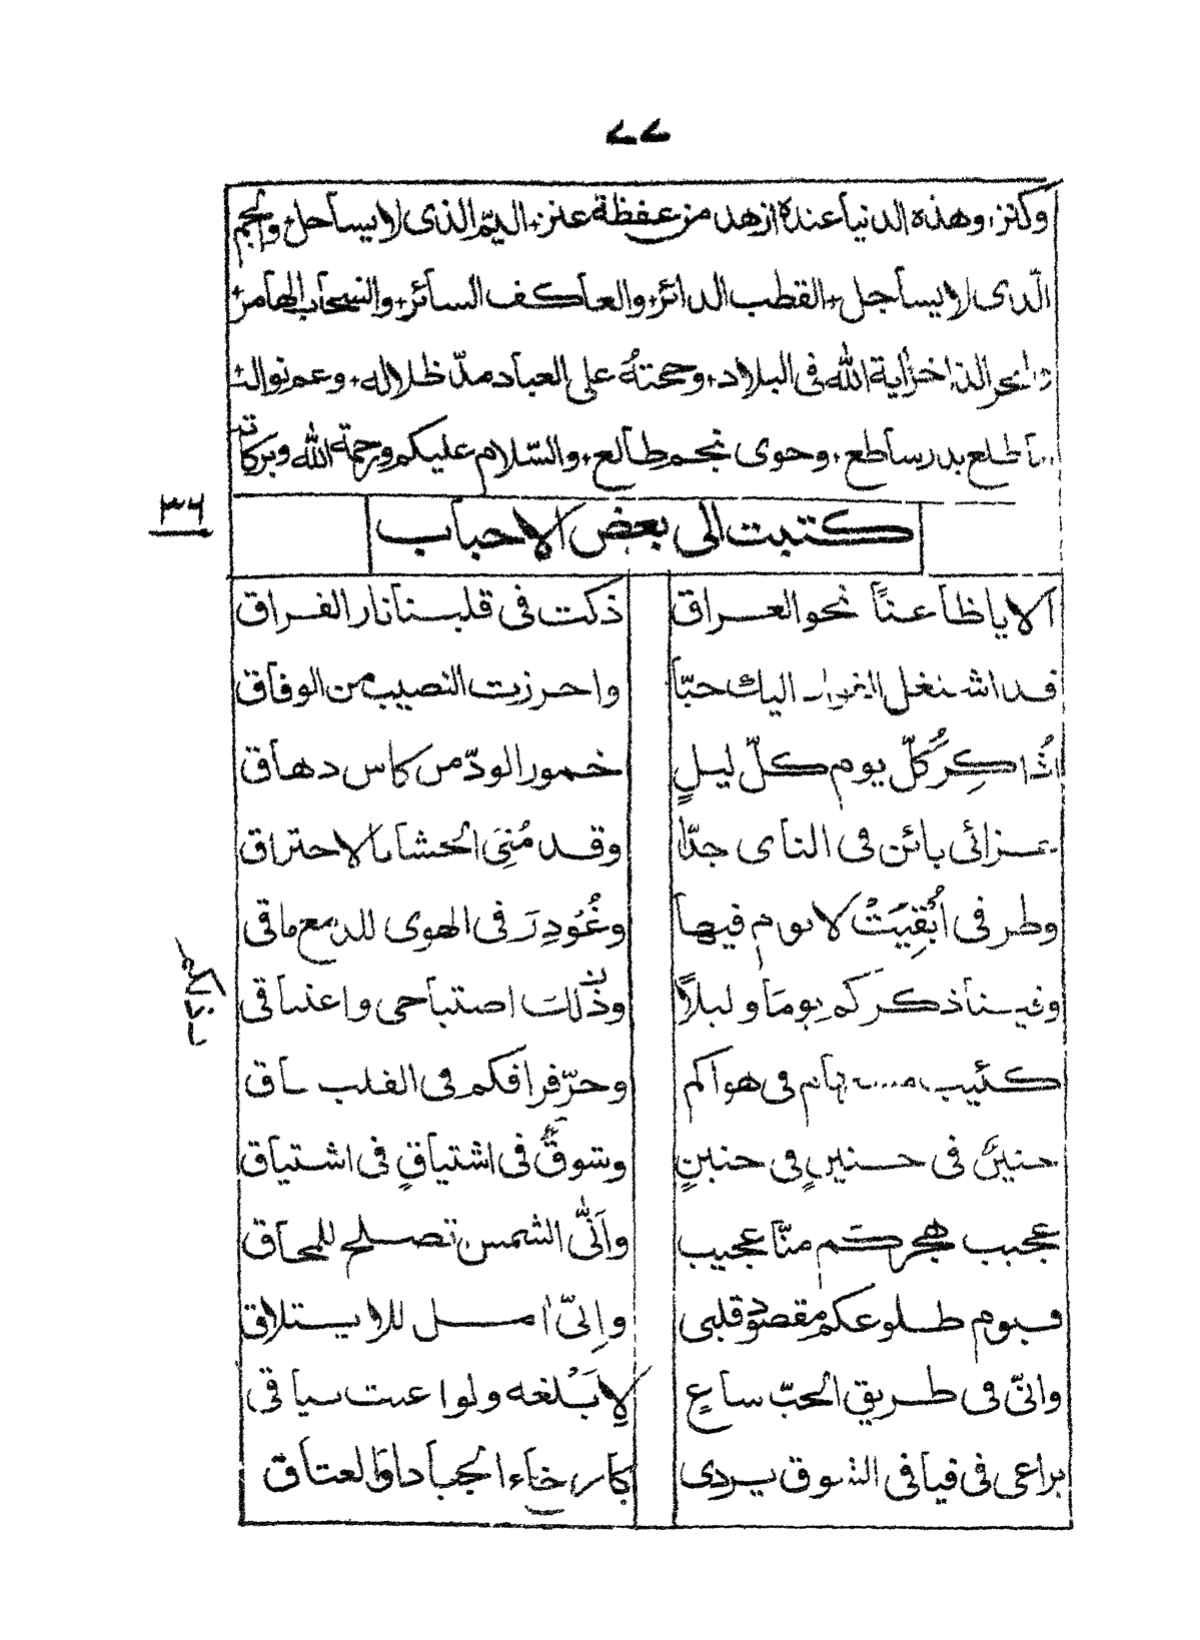 ٧٧
وكنز، وهذه الدنيا عنده ازهد من عفظة عنز، اليمّ الذى لا يساحل، والجم
الّذى لا يساجل، القطب الدائر، والعاكف السائر، والسحاب الهامر،
اية الله فى البلاد، وحجته على العباد مدّ ظلاله، وعم نواله
طلع بدر ساطع، وحوى نجم طالع، والسّلام عليكم ورحمة الله وبركاته
٣٦
كتبت الى بعض الاحباب
الا يا ظاعنًا نحو العراق ذكت فى قلبنا نار الفراق
قد اشتغل اليك حبّا واحرزت النصيب من الوفاق
كُلّ يوم كلّ ليلٍ خمور الودّ من كاس دهاق
عزائى بائن فى الناى جدّا وقد مُنِىَ الحشا بالاحتراق
وطرفى ابْقِيَتْ لا نوم فيها وغُوِدرَ فى الهوى للدمع ماقى
وفينا ذكركم يومًا وليلًا وذلك اصتباحى واغتباقى
تذكركم
كئيب هائم فى هواكم وحرّ فراقكم فى القلب باق
حنينٌ فى حنينٍ فى حنينٍ وشوقٌ فى اشتياقٍ فى اشتياق
عجيب هجركم منّا عجيب وانّى الشمس تصلح للمحاق
فيوم طلوعكم مقصود قلبى وانّى امل للايتلاق
وانّى فى طريق الحبّ ساعٍ لابلغه ولو اعيت سياقى
يراعى فى فيافى الشوق يردى الجياد او العتاق